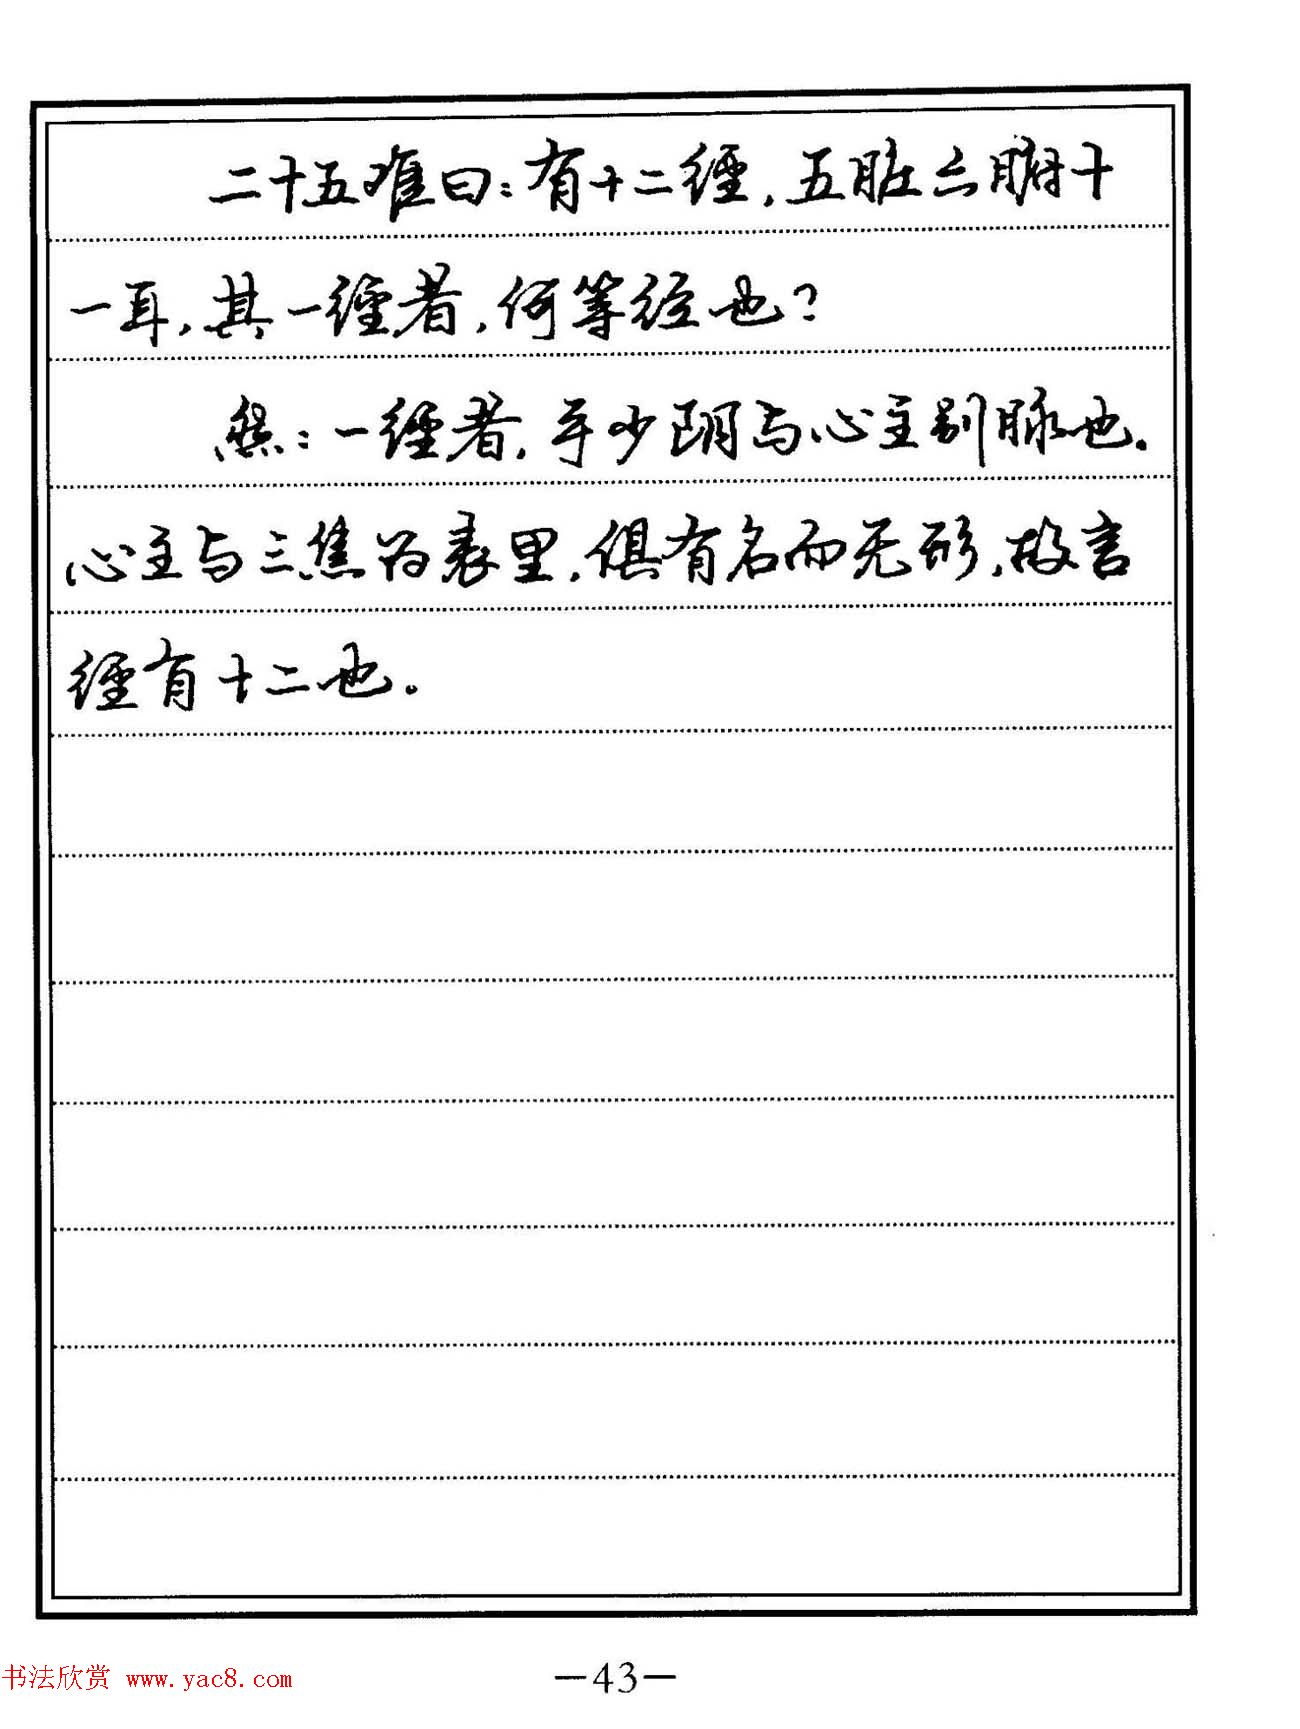 二十五难曰：有十二經，五脏六腑十
一耳，其一經者，何等经也？
然：一經者，手少阴与心主别脉也。
心主与三焦为表里，俱有名而无形，故言
經有十二也。
书法欣赏 www.yac8.com
—43—